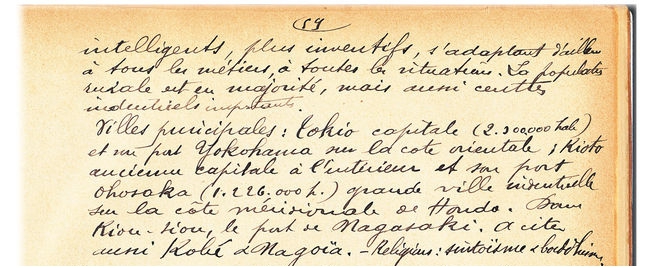 59
intelligents, plus inventifs, s'adaptant d'ailleurs
à tous les métiers, à toutes les situations. La population
rurale est en majorité, mais aussi centres
industriels importants.
Villes principales: Tokio capitale (2.300000 hab)
et son port Yokohama sur la côte orientale; Kioto
ancienne capitale à l'intérieur et son port
Ohosaka (1.226.000 h.) grande ville industrielle
sur la côte méridionale de Hondo. Dans
Kiou-siou, le port de Nagasaki. A citer
aussi Kobé & Nagoïa. - Religions: sintoïsme & bouddhisme,